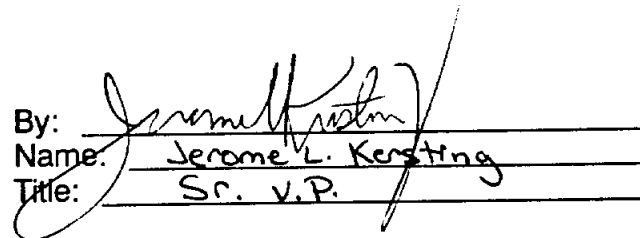 By: Jerome L Kersting
Name: Jerome L. Kersting
Title: Sr. V.P.